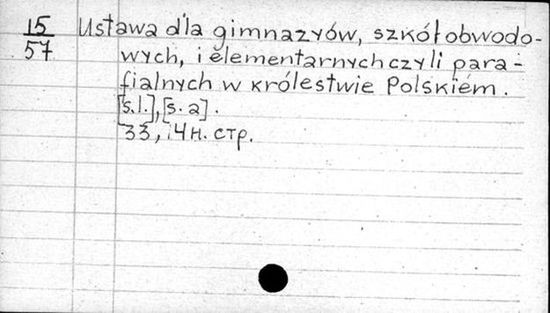 15
57
Ustawa dla gimnazyów, szkół obwodo-
wych, i elementarnych czyli para-
fialnych w Królestwie Polskiém.
[s.l.], [s.a].
33, 14 н. стр.